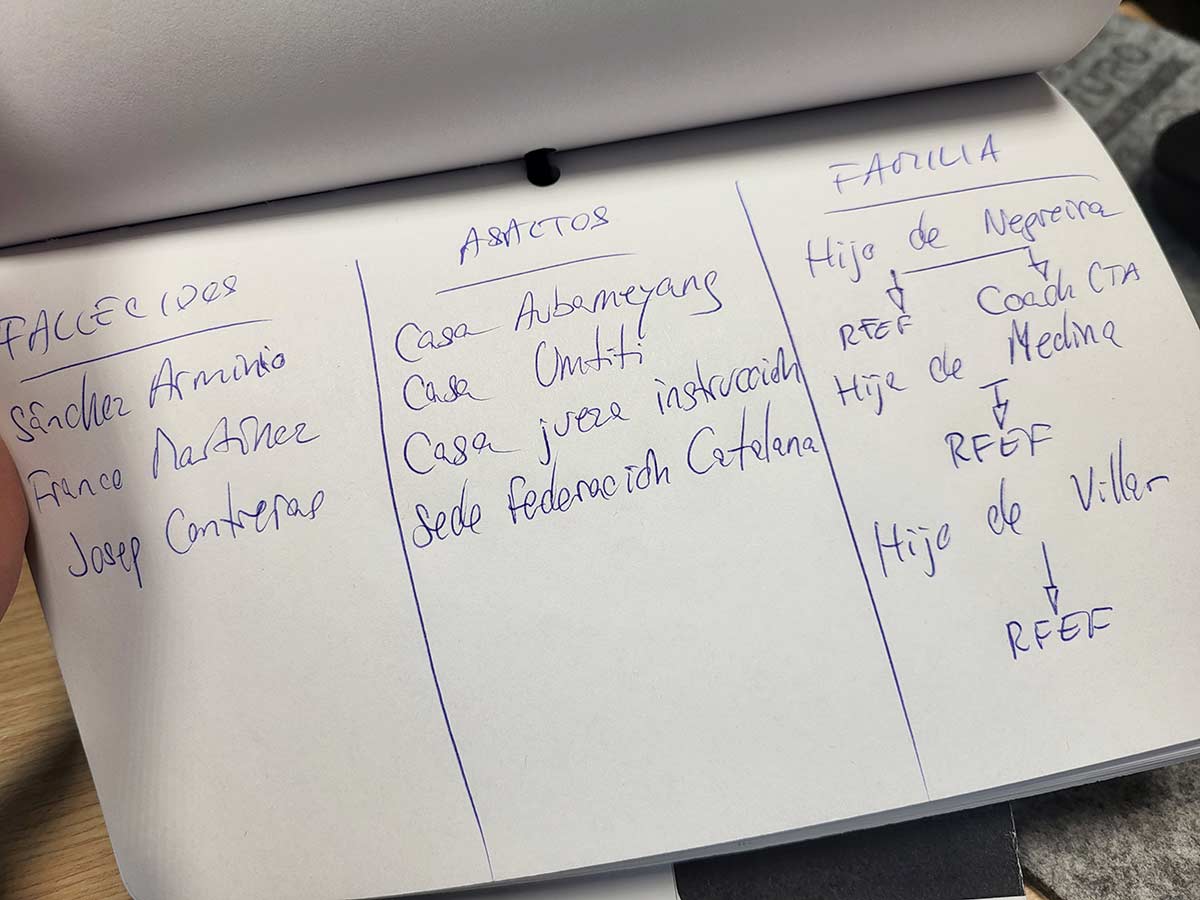 FALLECIDOS
Sánchez Arminio
Franco Martínez
Josep Contreras
ASALTOS
Casa Aubameyang
Casa Umtiti
Casa jueza instrucción
Sede Federación Catalana
FAMILIA
Hijo de Negreira
RFEF Coach CTA
Hija de Medina
RFEF
Hijo de Villar
RFEF